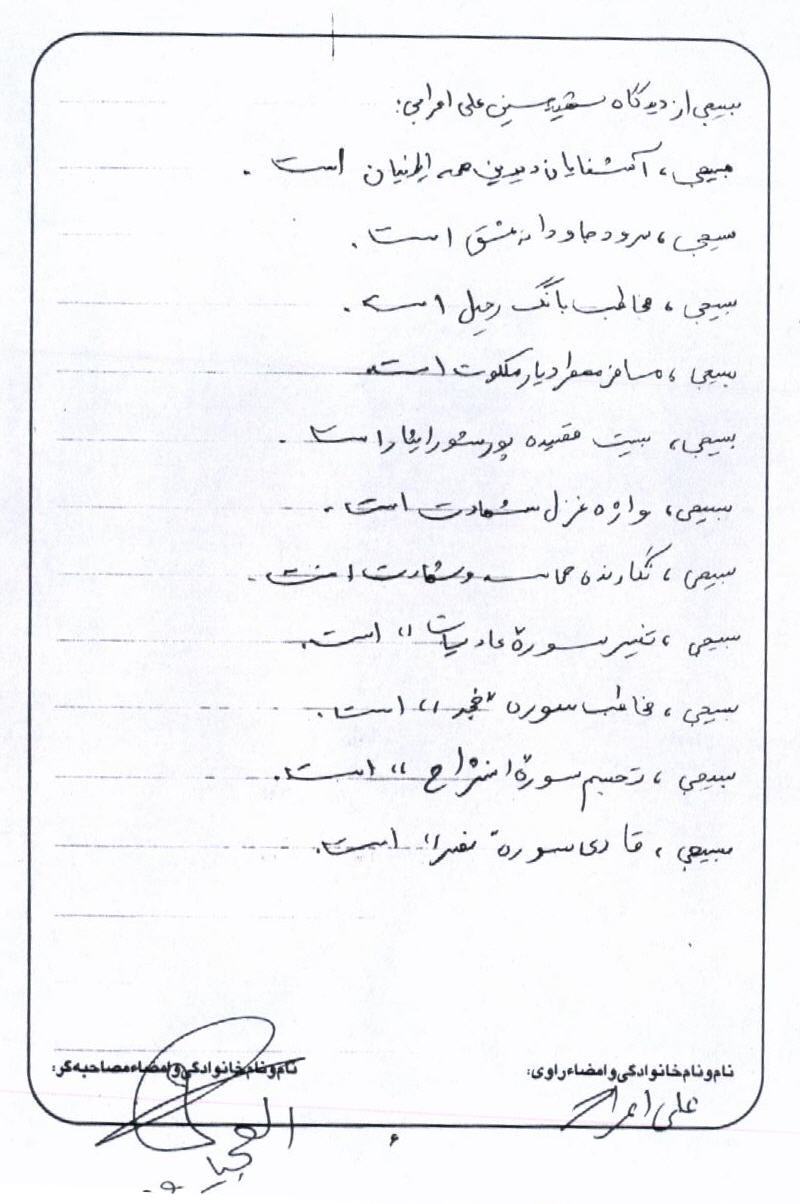 بسیجی از دیدگاه شهید حسین علی اعرابی:
بسیجی، آتشفشان دیرین همه ایرانیان است.
بسیجی، سرود جاودانه عشق است.
بسیجی، مخاطب بانگ رحیل است.
بسیجی، مسافر سفر دیار ملکوت است.
بسیجی، بیت قصیده پرشور ایثار است.
بسیجی، واژه غزل شهادت است.
بسیجی، نگارنده حماسه و شهادت است.
بسیجی، تفسیر سورۀ عادیات" است.
بسیجی، مخاطب سوره "فجر" است.
بسیجی، تجسم سورۀ انشراح" است.
بسیجی، قاری سوره "نصر" است.
نام و نام خانوادگی و امضاء راوی:
نام و نام خانوادگی و امضاء مصاحبه گر:
علی اعرابی
۶